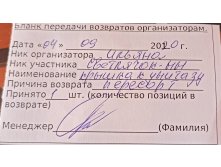 Бланк передачи возвратов организаторам.
Дата «04» 09 2020г.
Ник организатора Ильяна
Ник участника Светлячок-ны
Наименование крышка к унитазу
Причина возврата пересорт
Принято 1 шт. (количество позиций в
возврате)
Менеджер (Фамилия)